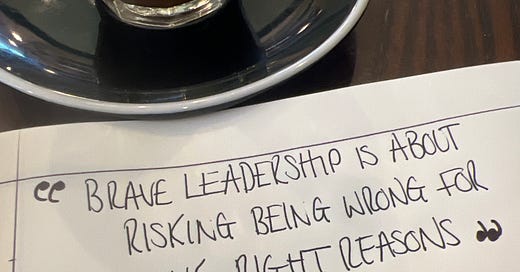 “ BRAVE LEADERSHIP IS ABOUT
RISKING BEING WRONG FOR
RIGHT REASONS ”